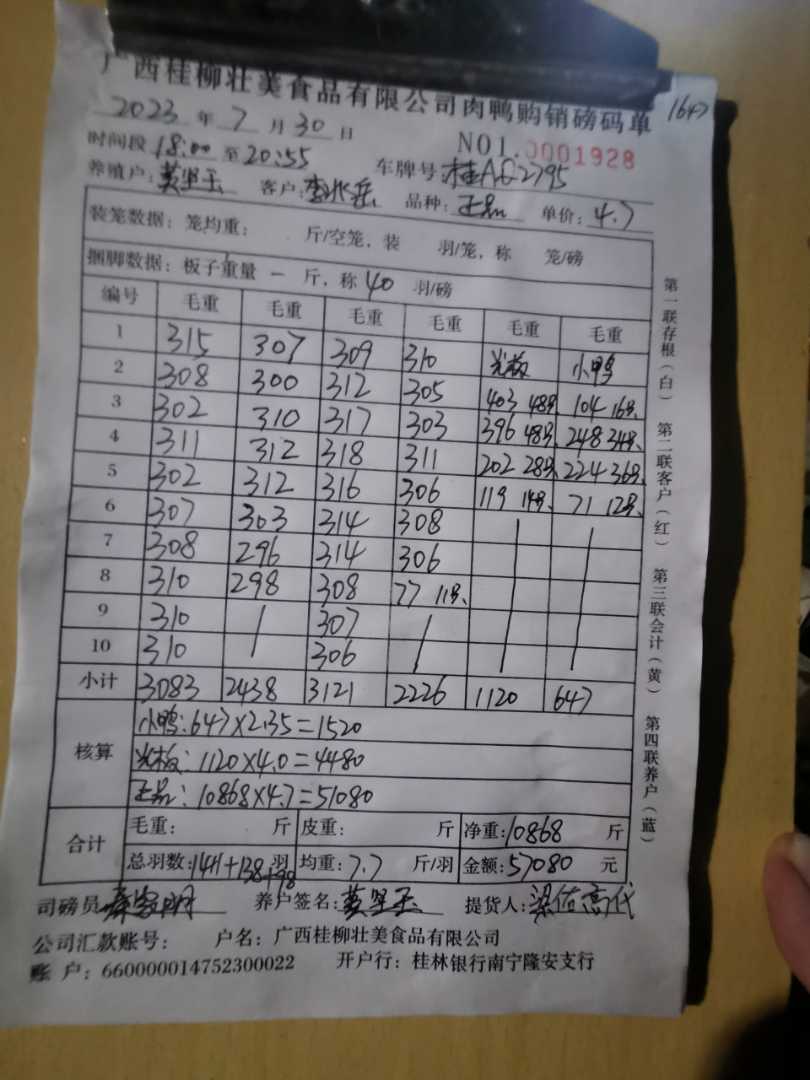 广西桂柳壮美食品有限公司肉鸭购销磅码单 1647
2023 年 7 月 30 日 NO1.0001928
时间段 18:00 至 20:55 车牌号:桂AQ2795
养殖户:黄坚玉 客户: 品种:正品 单价:4.7
装笼数据:笼均重: 斤/空笼,装 羽/笼,称 笼/磅
捆脚数据:板子重量 一 斤,称 40 羽/磅
编号 毛重 毛重 毛重 毛重 毛重 毛重
1 315 307 309 310 光板 小鸭
2 308 300 312 305 403 48只 104 16只
3 302 310 317 303 396 48只 248 34只
4 311 312 318 311 202 28只 224 36只
5 302 312 316 306 119 14只 71 12只
6 307 303 314 308 / /
7 308 296 314 306 / /
8 310 298 308 77 11只 / /
9 310 / 307 / / /
10 310 / 306 / / /
小计 3083 2438 3121 2226 1120 647
核算 小鸭:647×2.35=1520
光板:1120×4.0=4480
正品:10868×4.7=51080
合计 毛重: 斤 皮重: 斤 净重:10868 斤
总羽数:1411+138+98 羽 均重:7.7 斤/羽 金额:57080 元
司磅员 养户签名:黄坚玉 提货人:
公司汇款账号: 户名:广西桂柳壮美食品有限公司
账 户:660000014752300022 开户行:桂林银行南宁隆安支行
第一联存根(白) 第二联客户(红) 第三联会计(黄) 第四联养户(蓝)